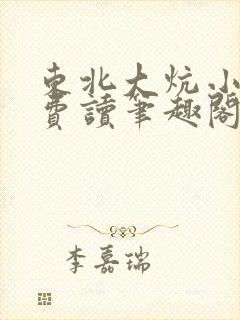 東北大炕小
費讀筆趣閣
李嘉瑞